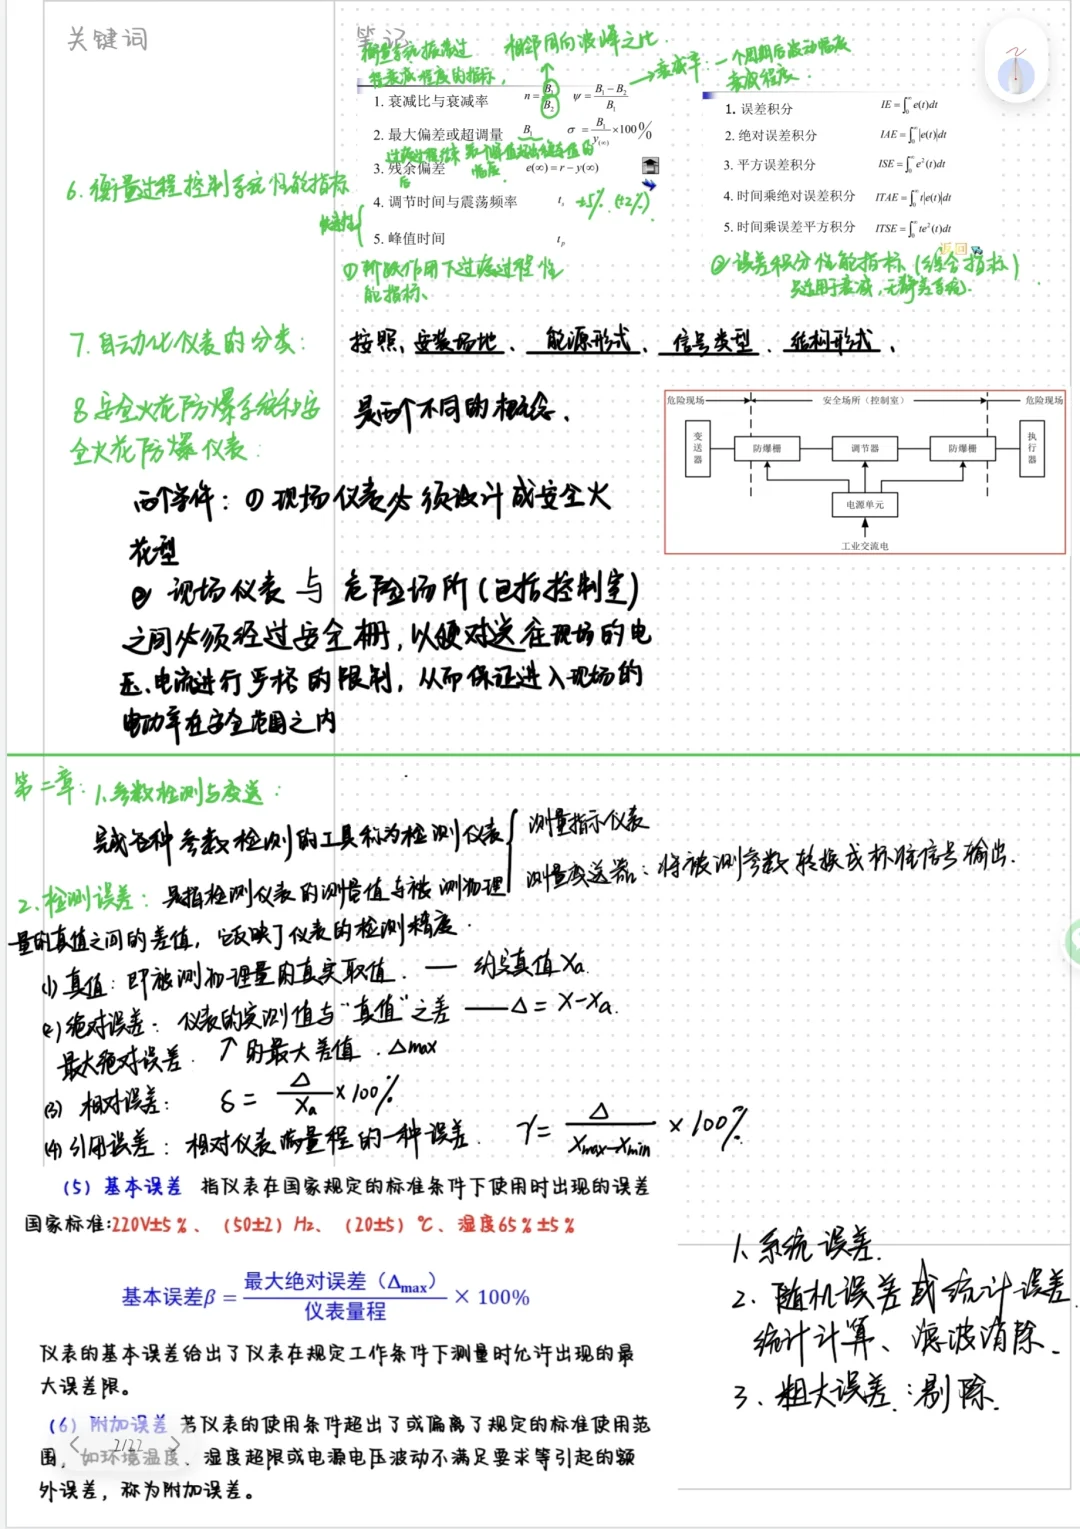 关键词
笔记
衡量系统振荡过
程衰减程度的指标,
相邻同向波峰之比.
衰减率: 一个周期后波动幅度
衰减程度.
1. 衰减比与衰减率 n=B₁/B₂ ψ=(B₁-B₂)/B₁
2. 最大偏差或超调量 B₁ σ=B₁/y(∞)×100%
3. 残余偏差 e(∞)=r-y(∞)
4. 调节时间与震荡频率 tₛ ±5% (±2%)
快速性
5. 峰值时间 tₚ
① 阶跃作用下过渡过程性
能指标、
1. 误差积分 IE=∫₀^∞ e(t)dt
2. 绝对误差积分 IAE=∫₀^∞ |e(t)|dt
3. 平方误差积分 ISE=∫₀^∞ e²(t)dt
4. 时间乘绝对误差积分 ITAE=∫₀^∞ t|e(t)|dt
5. 时间乘误差平方积分 ITSE=∫₀^∞ te²(t)dt
返回
② 误差积分性能指标(综合指标)
只适用于衰减,无静差系统.
6. 衡量过程控制系统性能指标
7. 自动化仪表的分类:
按照、安装场地、能源形式、信号类型、结构形式、
8 安全火花防爆系统和安
全火花防爆仪表:
是两个不同的概念、
危险现场
安全场所(控制室)
危险现场
变送器
防爆栅
调节器
防爆栅
执行器
电源单元
工业交流电
两个条件: ① 现场仪表必须设计成安全火
花型
② 现场仪表与危险场所(包括控制室)
之间必须经过安全栅, 以便对送往现场的电
压、电流进行严格的限制, 从而保证进入现场的
电功率在安全范围之内
第二章: 1.参数检测与变送:
完成各种参数检测的工具称为检测仪表
测量指示仪表
测量变送器: 将被测参数转换成标准信号输出.
2. 检测误差: 是指检测仪表的测量值与被测物理
量的真值之间的差值, 它反映了仪表的检测精度.
(1) 真值: 即被测物理量的真实取值. — 约定真值Xa.
(2) 绝对误差: 仪表的实测值与“真值”之差 — Δ=X-Xa.
最大绝对误差. ↑的最大差值. Δmax
(3) 相对误差: δ=Δ/Xa×100%
(4) 引用误差: 相对仪表满量程的一种误差. γ=Δ/(Xmax-Xmin)×100%
(5) 基本误差 指仪表在国家规定的标准条件下使用时出现的误差
国家标准:220V±5%、(50±2) Hz、(20±5) ℃、湿度65%±5%
基本误差β=最大绝对误差(Δmax)/仪表量程×100%
仪表的基本误差给出了仪表在规定工作条件下测量时允许出现的最
大误差限。
(6) 附加误差 若仪表的使用条件超出了或偏离了规定的标准使用范
围, 如环境温度、湿度超限或电源电压波动不满足要求等引起的额
外误差, 称为附加误差。
2/22
1、系统误差.
2、随机误差或统计误差.
统计计算、滤波消除.
3、粗大误差: 剔除.